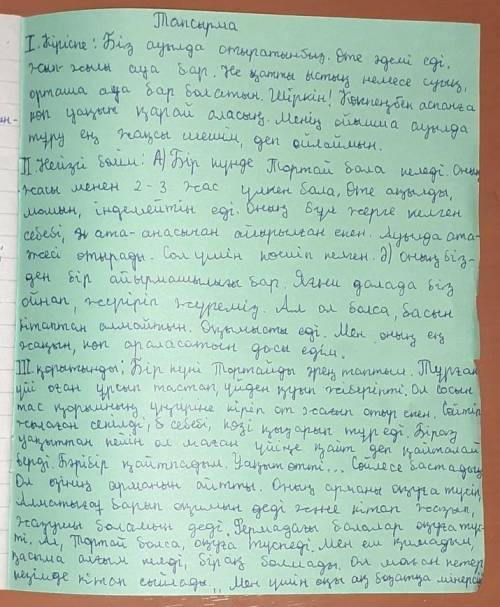 Тапсырма
I. Кіріспе: Біз ауылда отыратынбыз. Өте әдемі еді.
Жып-жылы ауа бар. Не қатты ыстық немесе суық,
орташа ауа бар болатын. Шіркін! Көкпеңбек аспанға
көп уақыт қарай аласың. Менің ойымша ауылда
тұру ең жақсы шешім, деп ойлаймын.
II. Негізгі бөлім: А) Бір күнде Тортай бала келеді. Оның
жасы менен 2-3 жас үлкен бала. Өте ақылды,
момын, үндемейтін еді. Оның бұл жерге келген
себебі, ата-анасынан айырылған екен. Ауылда ата-
жесі отырады. Сол үшін көшіп келген. Ә) Оның біз-
ден бір айырмашылығы бар. Яғни далада біз
ойнап, жүгіріп жүреміз. Ал ол болса, басын
кітаптан алмайтын. Оқымысты еді. Мен оның ең
жақын, көп араласатын досы едім.
III. қорытынды: Бір күні Тортайды зорға таптым. Тұрған
үйі оған ұрсып тастап, үйден қуып жіберіпті. Ол сосын
тас қорымның үңгіріне кіріп от жағып отыр екен. Сөйтіп
жылаған секілді, себебі, көзі қызарып тұр еді. Біраз
уақыттан кейін ол маған үйіңе қайт деп қайталай
берді. Бәрібір қайтпадым. Уақыт өтті... Сөйлесе бастадық
Ол өзінің арманын айтты. Оның арманы оқуға түсіп,
Алматыға барып оқимын деді және кітап жазып,
жазушы боламын деді. Фермадағы балалар оқуға түс-
ті. Ал, Тортай болса, оқуға түспеді. Мен оны қимадым,
қасыма алғым келді, бірақ болмады. Ол маған кетер
кезімде кітап сыйлады... Мен үшін оңы ақ боз атқа мінгендей